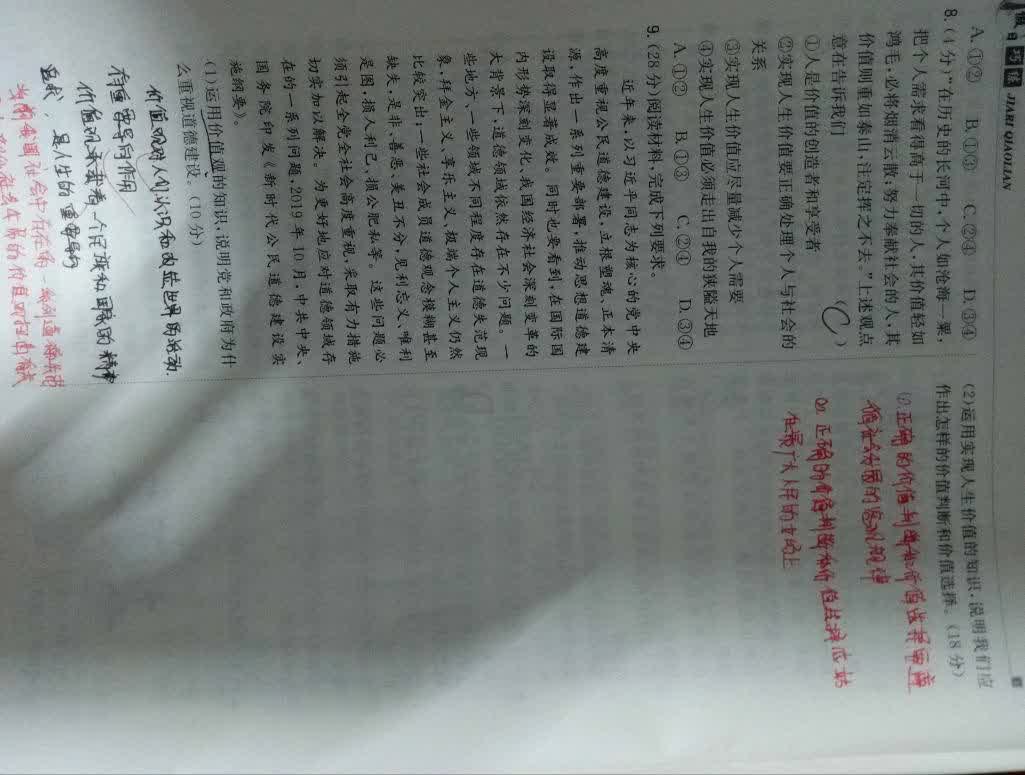 假日巧练 JIARI QIAOLIAN
A.①② B.①③ C.②④ D.③④
8.(4分)“在历史的长河中,个人如沧海一粟,
把个人需求看得高于一切的人,其价值轻如
鸿毛,必将烟消云散;努力奉献社会的人,其
价值则重如泰山,注定挥之不去。”上述观点
意在告诉我们 (C)
①人是价值的创造者和享受者
②实现人生价值要正确处理个人与社会的
关系
③实现人生价值应尽量减少个人需要
④实现人生价值必须走出自我的狭隘天地
A.①② B.①③ C.②④ D.③④
9.(28分)阅读材料,完成下列要求。
近年来,以习近平同志为核心的党中央
高度重视公民道德建设,立根塑魂,正本清
源,作出一系列重要部署,推动思想道德建
设取得显著成效。同时也要看到,在国际国
内形势深刻变化、我国经济社会深刻变革的
大背景下,道德领域依然存在不少问题。一
些地方、一些领域不同程度存在道德失范现
象,拜金主义、享乐主义、极端个人主义仍然
比较突出;一些社会成员道德观念模糊甚至
缺失,是非、善恶、美丑不分,见利忘义、唯利
是图,损人利己、损公肥私等。这些问题必
须引起全党全社会高度重视,采取有力措施
切实加以解决。为更好地应对道德领域存
在的一系列问题,2019年10月,中共中央、
国务院印发《新时代公民道德建设实
施纲要》。
(1)运用价值观的知识,说明党和政府为什
么重视道德建设。(10分)
价值观对人们认识和改造世界的活动
存重要导向作用
价值观承载着一个民族和国家的精神
追求,是人生的重要向
当前我国社会中存在的一些
(2)运用实现人生价值的知识,说明我们应
作出怎样的价值判断和价值选择。(18分)
①正确的价值判断和价值选择要遵
循社会发展的客观规律
②正确的价值判断和价值选择应站
在最广大人民的立场上